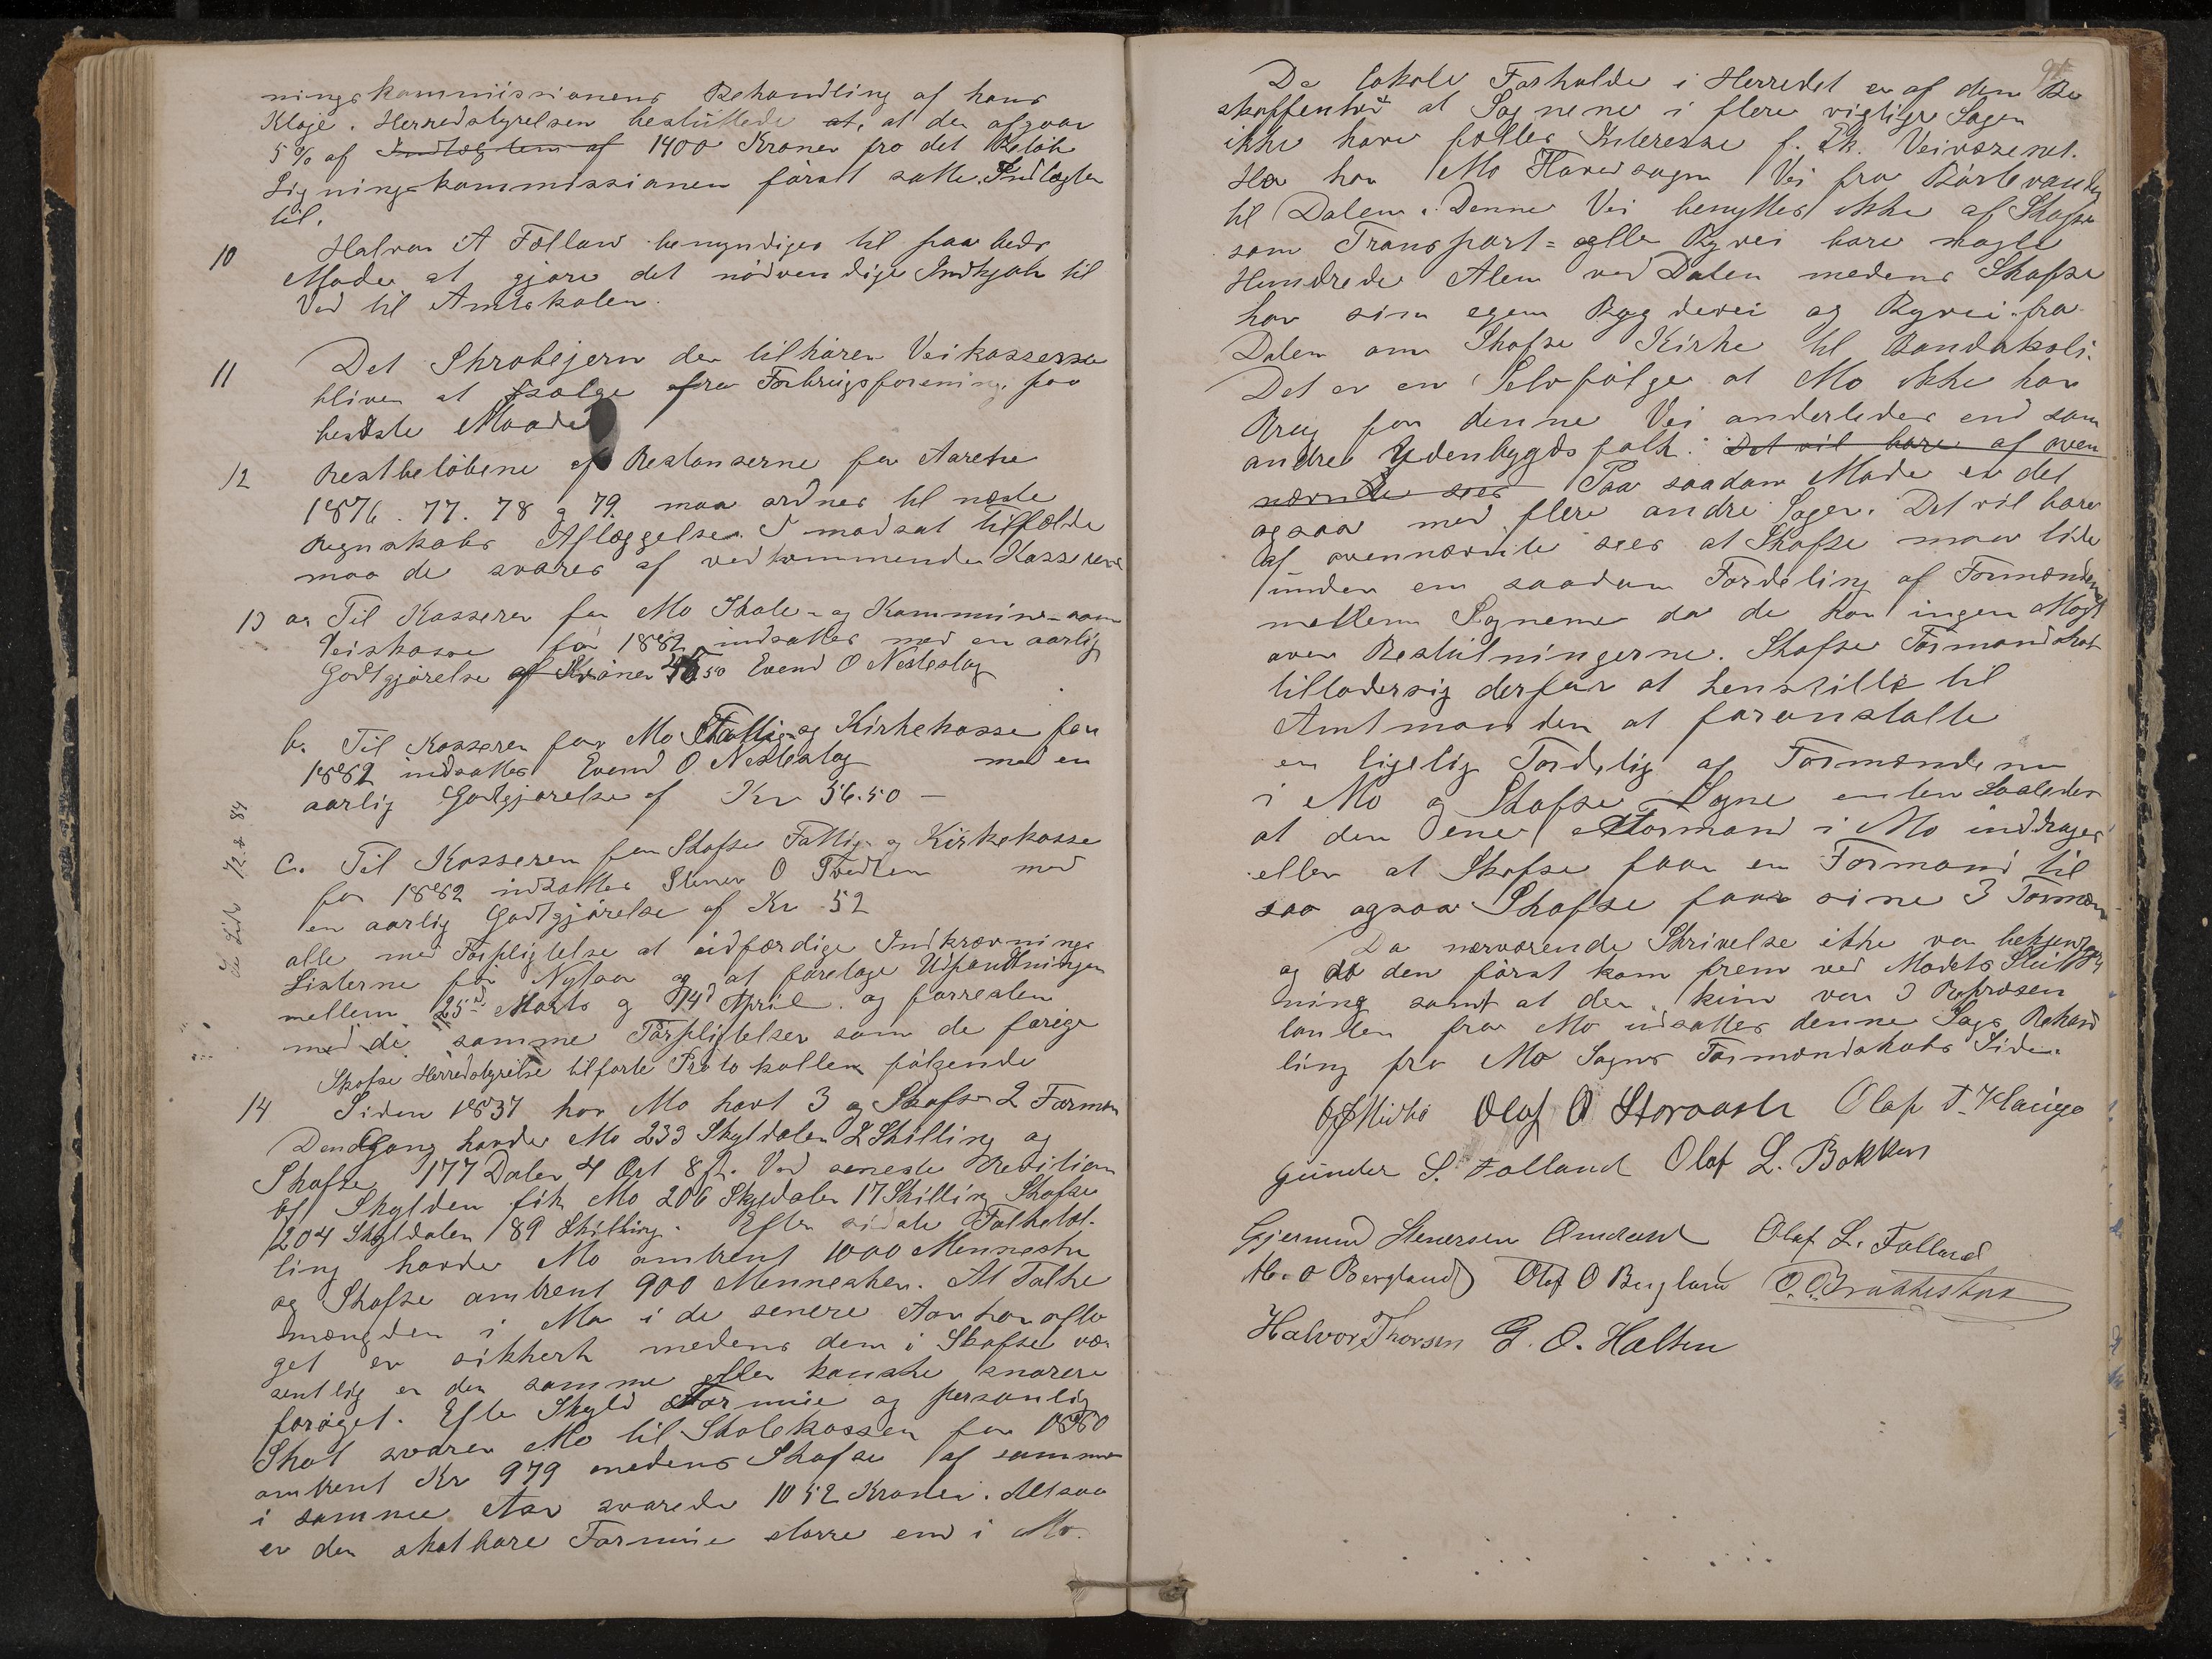 ningskommissionens Behandling af hans
Klage. Herredstyrelsen besluttede at, at der afgaar
5 % af Indtægten af 1400 Kroner fra det Beløb
Ligningskommissionen først satte Indtægten
til.
10 Halvor A Følland bemyndiges til paa beds
Maade at gjøre det nødvendige Indkjøb til
Ved til Amtskolen.
11 Det Skrabejern der tilhører Veikasserne
bliver at sælge fra Forbrugsforening. paa
bedste Maade
12 Restbeløbene af Restanserne for Aarene
1876. 77. 78 g 79. maa ordnes til næste
Regnskabs Aflæggelse. I modsat Tilfælde
maa de svares af vedkommende Kasserere
13 a. Til Kasserer for Mo Skole- og Kommune- som
Veiskasse for 1882 indsattes med en aarlig
Godtgjørelse af Kroner 50 Evend O Nesteslog
b. Til Kasserer for Mo Fattig- og Kirkekasse for
1882 indsattes Evend O Nesteslog med en
aarlig Godtgjørelse af Kr 56.50 —
c. Til Kasserer for Skafse Fattig- og Kirkekasse
for 1882 indsattes Stener O Tvedten med
en aarlig Godtgjørelse af Kr 52
alle med Forpligtelse at udfærdige Indkrævnings
Listerne før Nytaar og at foretage Udpantningen
mellem 25d Marts g 14d April og forresten
med de samme Forpligtelser som de forige
Skafse Herredstyrelse tilførte Protokollen følgende
14 Siden 1837 har Mo havt 3 og Skafse 2 Formæn
Dengang havde Mo 233 Skyldaler 2 Skilling og
Skafse 177 Daler 4 Ort 8 s. Ved seneste Revision
af Skylden fik Mo 206 Skyldaler 17 Skilling Skafse
204 Skyldaler 89 Skilling. Efter sidste Folketæl-
ling havde Mo omtrent 1000 Mennesker
og Skafse omtrent 900 Mennesker. At Folke
mængden i Mo i de senere Aar har afta
get er sikkert medens dem i Skafse væ
sentlig er den samme eller kanske snarere
forøget. Efter Skyld Formue og personlig
Skat svarer Mo til Skolekassen for 1880
omtrent Kr 979 medens Skafse af samme
i samme Aar svarede 1052 Kroner. Altsaa
er den skatbare Formue større end i Mo.
De lokale Forholde i Herredet er af den Be
skaffenhed at Sognene i flere vigtige Sager
ikke have fælles Interesse f. Ek. Veivæsenet.
Her har Mo Hovedsogn Vei fra Børtevandet
til Dalen. Denne Vei benyttes ikke af Skafse
som Transport- eller Byvei bare nogle
Hundrede Alen ved Dalen medens Skafse
har sin egen Bygdevei og Byvei fra
Dalen om Skafse Kirke til Bandaksli.
Det er en Selvfølge at Mo ikke har
Brug for denne Vei anderledes end som
andre Udenbygdsfolk. Det vil bare af oven
nævnte sees Paa saadan Maade er det
ogsaa med flere andre Sager. Det vil bare
af ovennævnte sees at Skafse maa lide
under en saadan Fordeling af Formændene
mellem Sognene da de har ingen Magt
over Beslutningerne. Skafse Formandskab
tilladersig derfor at henstille til
Amtmanden at foranstalte
en ligelig Fordelig af Formændene
i Mo og Skafse Sogne enten Saaledes
at den ene Formand i Mo inddrages
eller at Skafse faar en Formand til
saa ogsaa Skafse faar sine 3 Formæn
Da nærværende Skrivelse ikke var bekjendt
og da den først kom frem ved Mødets Slut
ning samt at der kun var 3 Repræsen
tanter fra Mo udsattes denne Sags Behand
ling fra Mo Sogns Formandskabs Side.
Olaf O Storaasli Olaf T. Hauge
Gunder S. Folland Olaf L. Bakken
Gjermund Stenersen Omdahl Olaf L. Folland
H. O Bergland Olaf O Bergland
Halvor Thorsen G. O. Halten